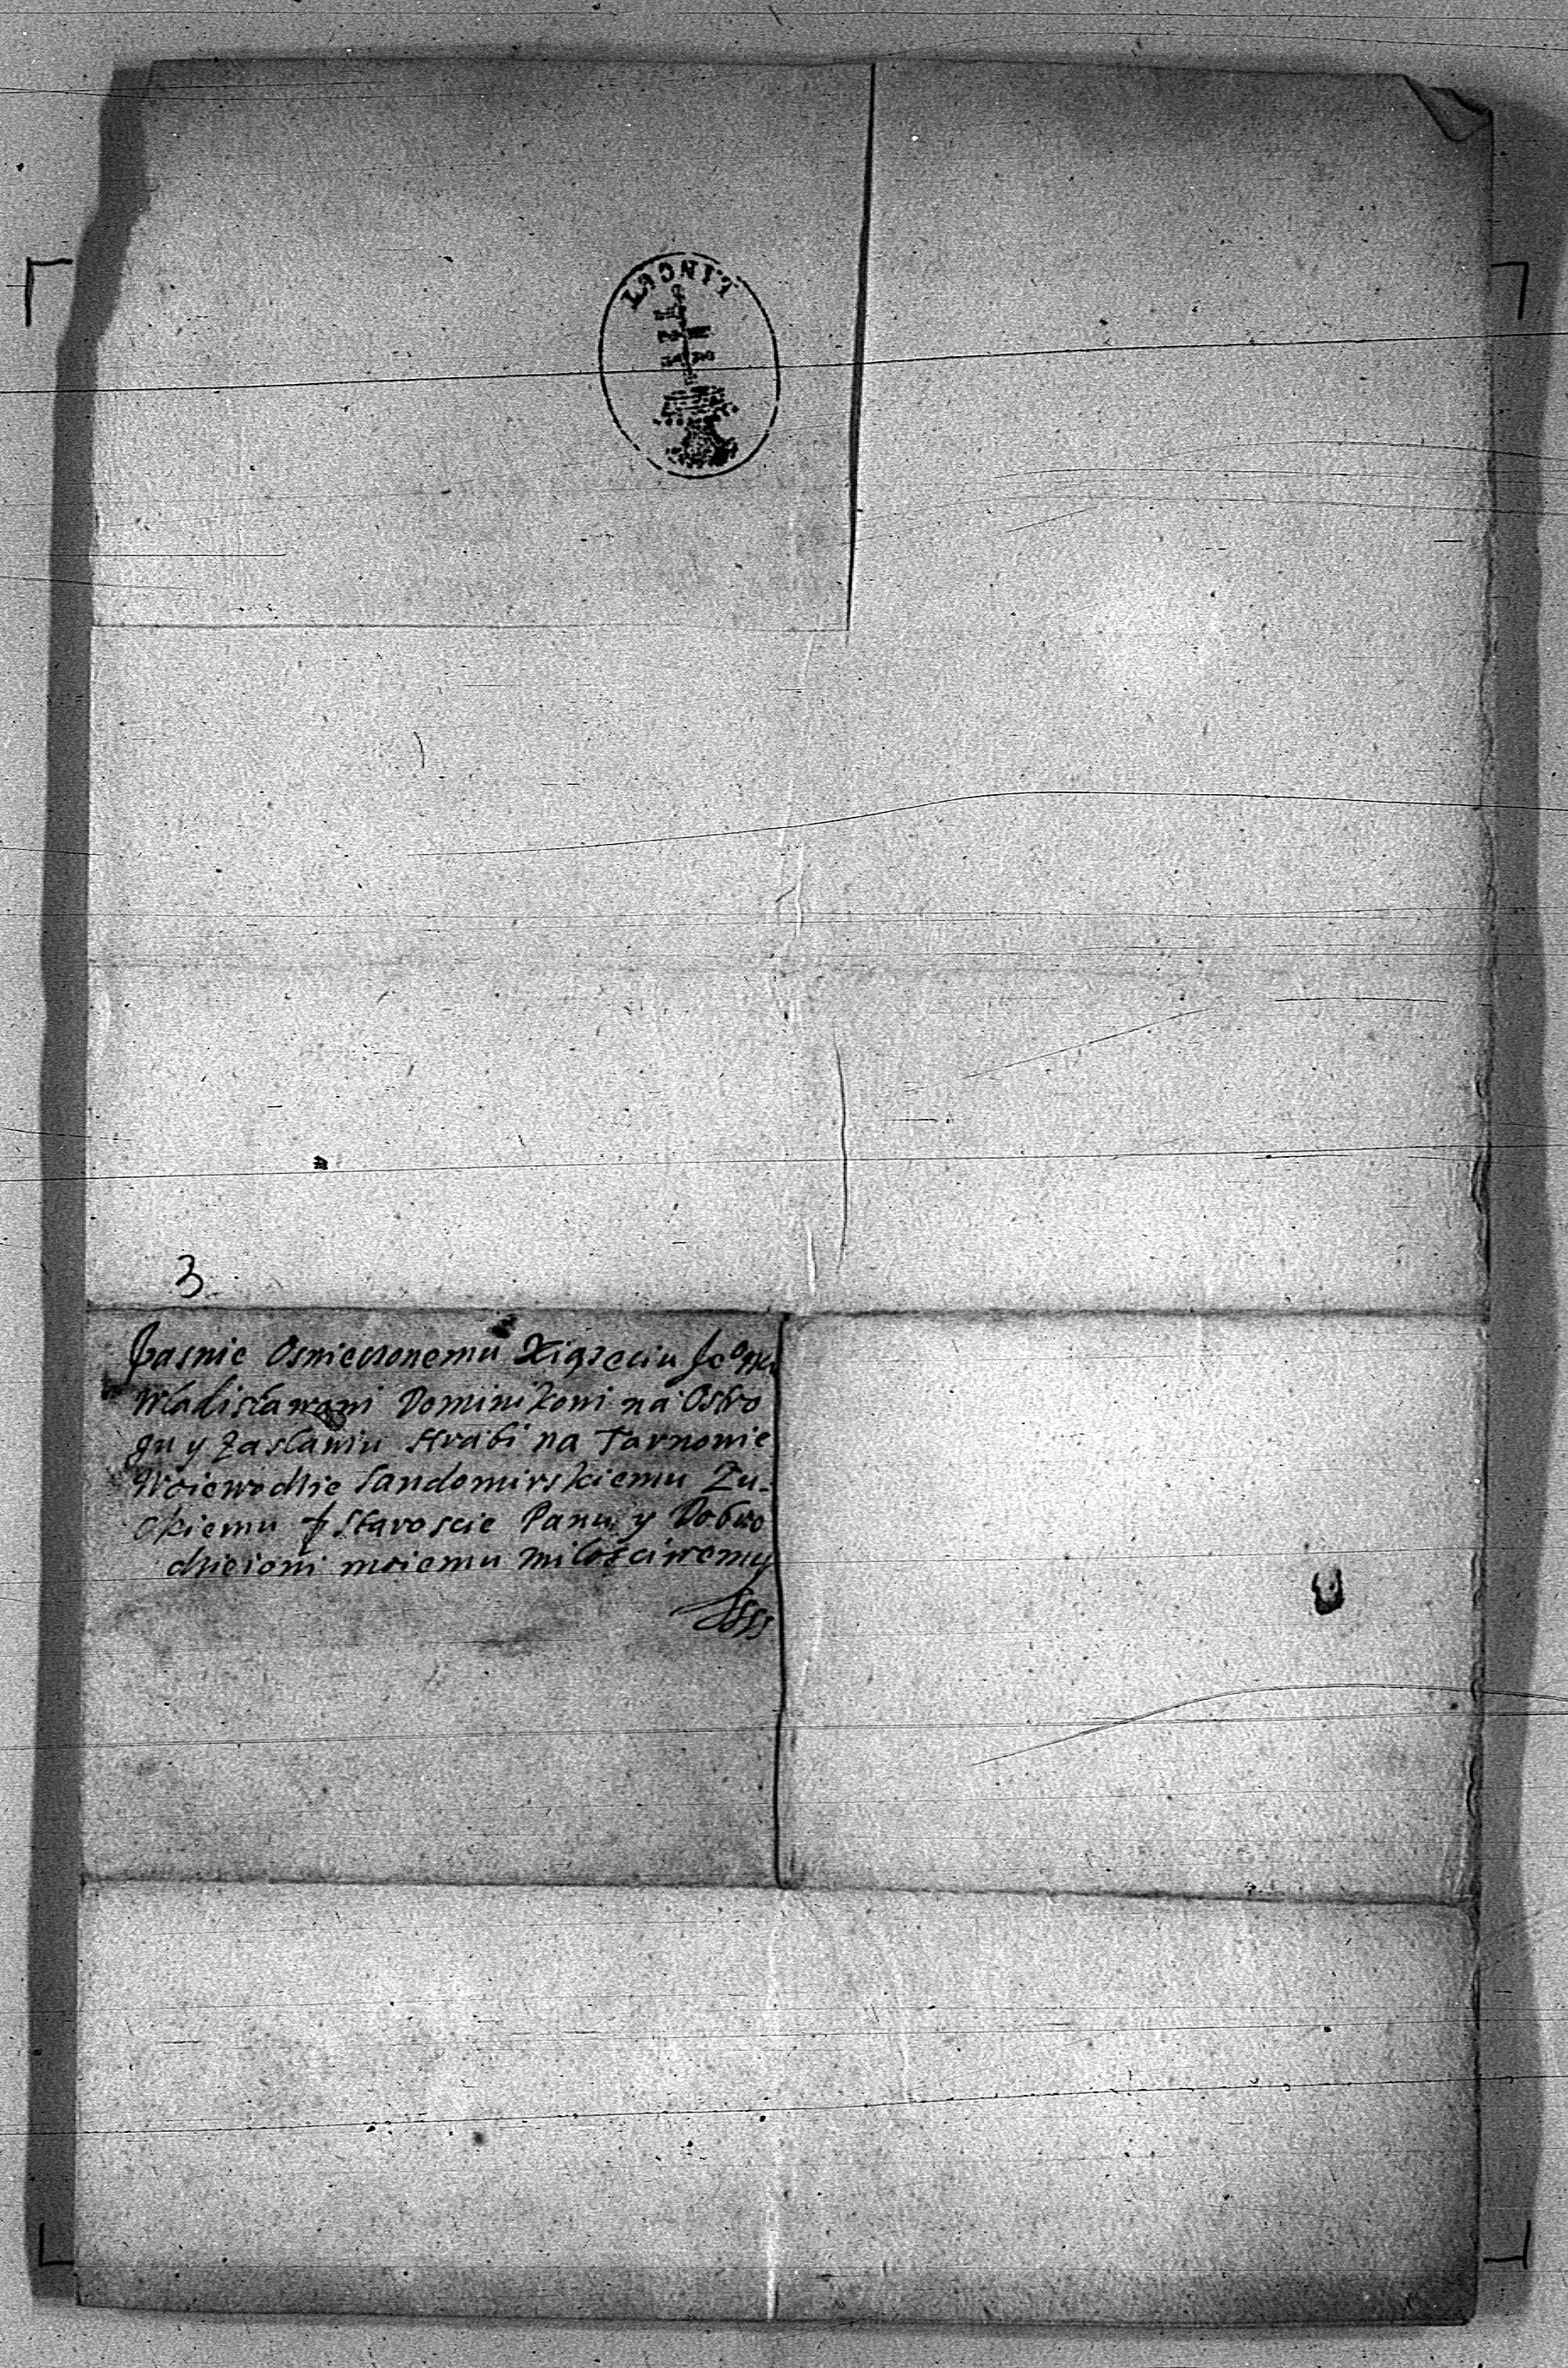 3
Jasnie Oswieconemu Xiązęciu Je°mci
Władisławowi Dominikowi na Ostro
gu y Zasławiu Hrabi na Tarnowie
Woiewodzie Sandomirskiemu Łu-
ckiemu Staroscie Panu y Dobro
dzieiowi moiemu miłościwemu